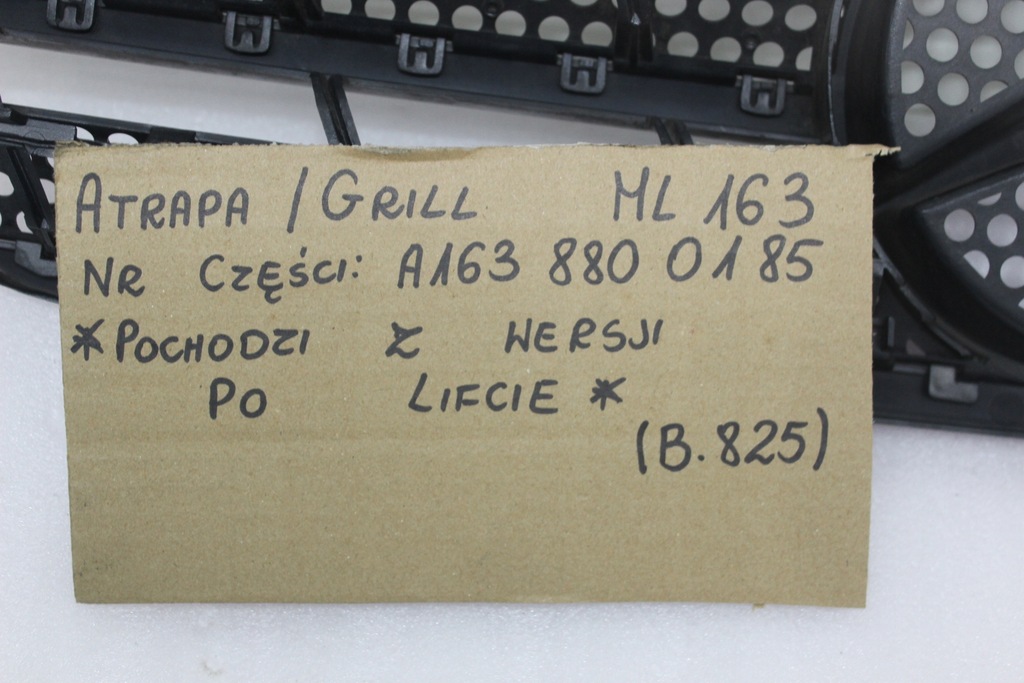 ATRAPA / GRILL ML 163
NR CZĘŚCI: A163 880 01 85
*POCHODZI Z WERSJI
PO LIFCIE *
(B.825)